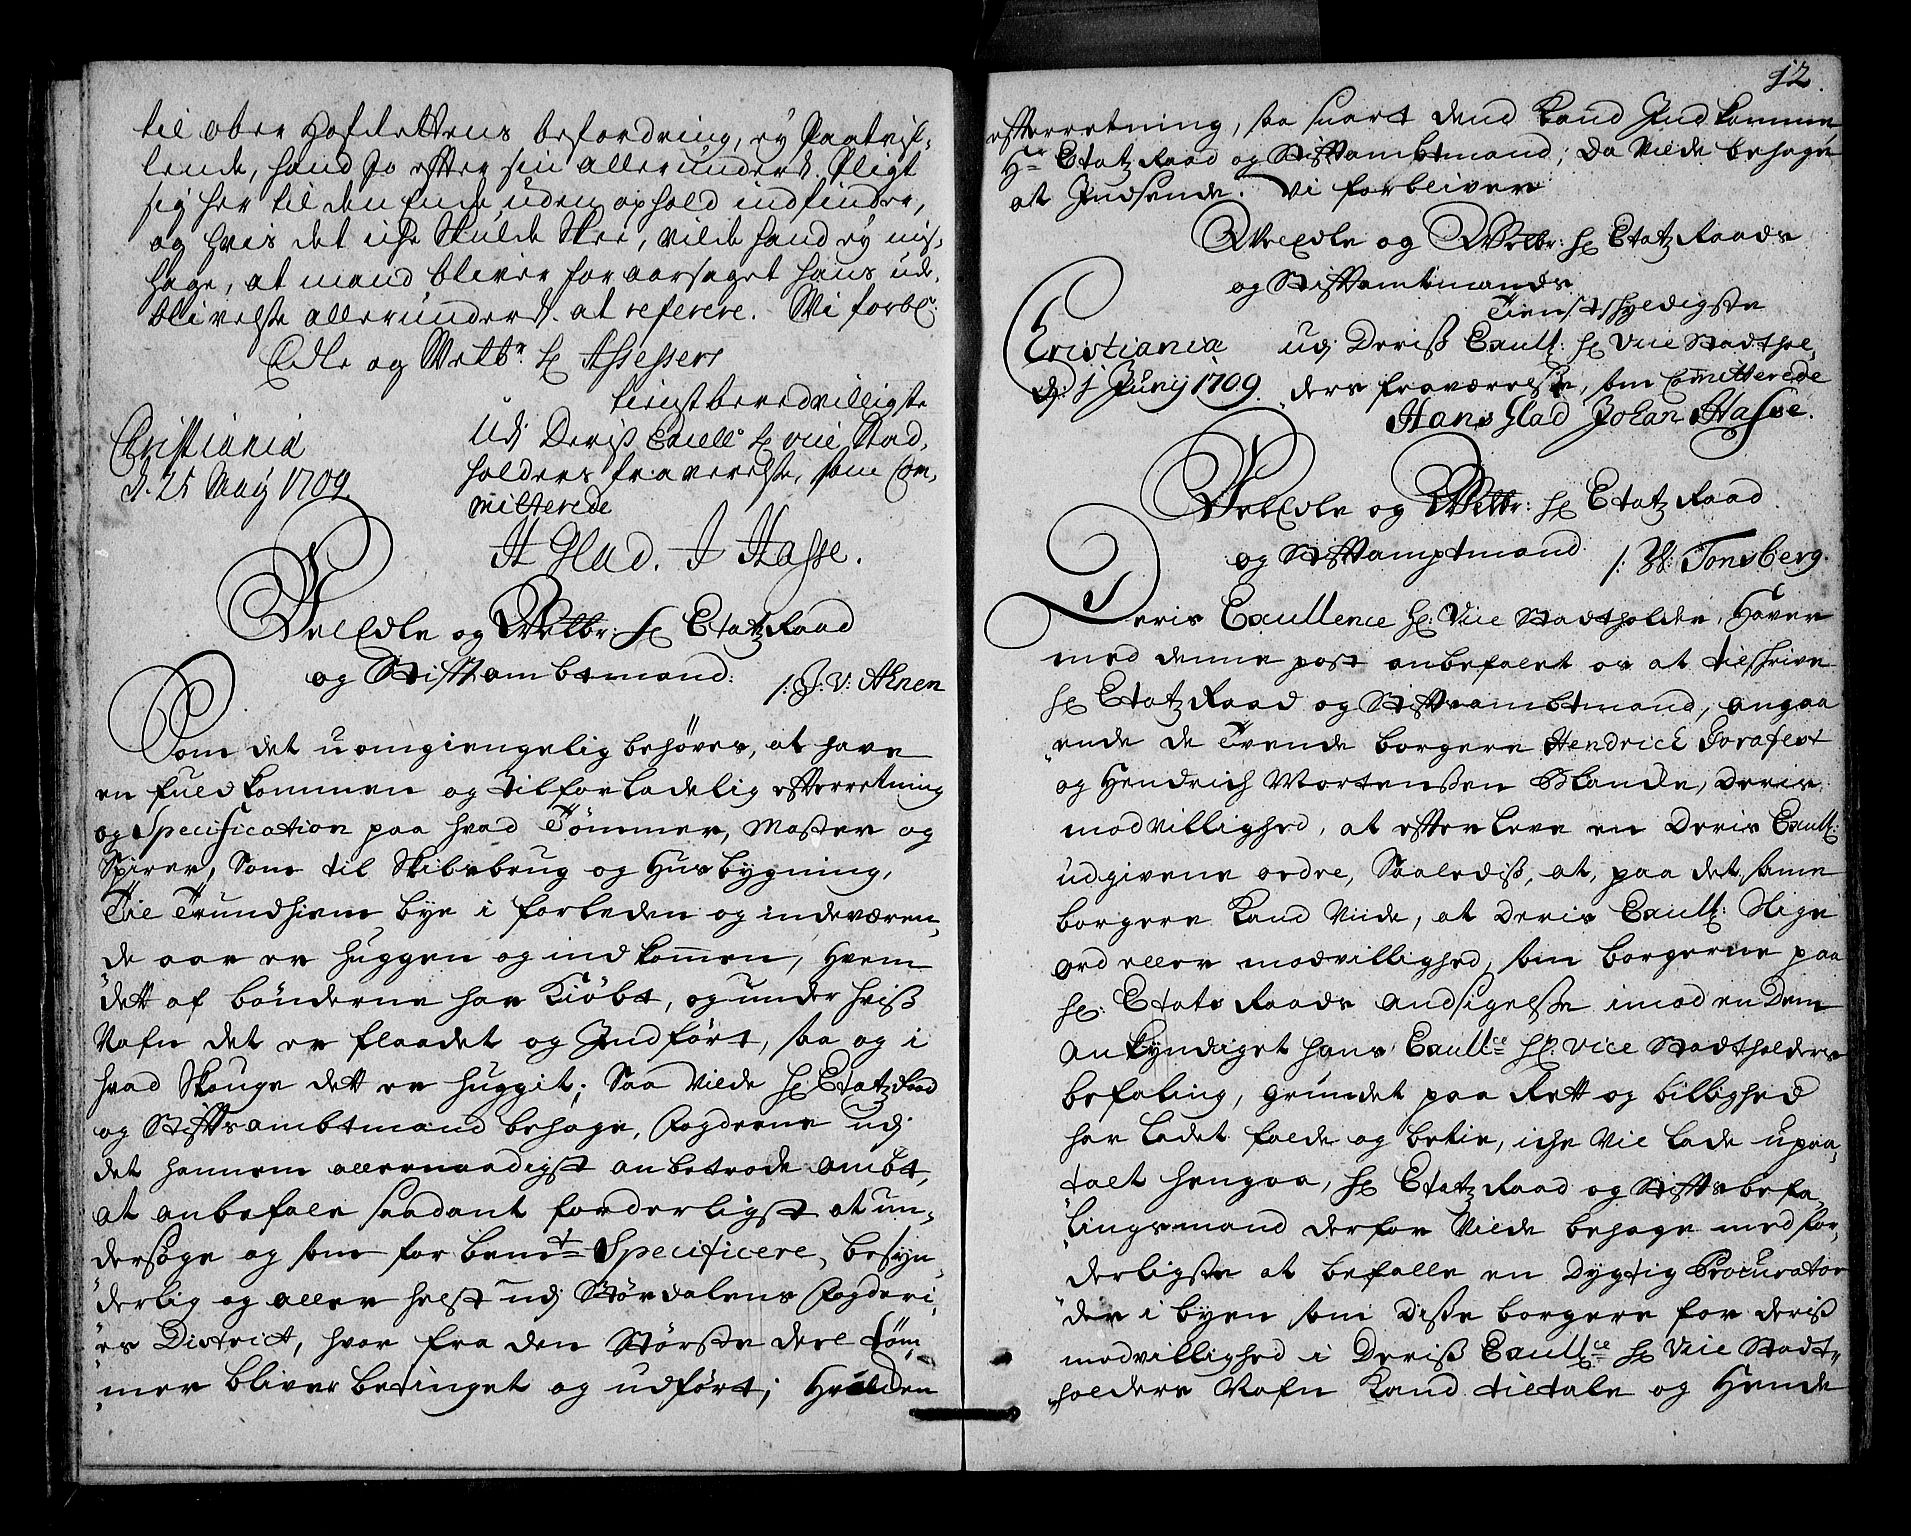 til ober Hofrettens befordring, ey Paatvif-
lende, hand jo effter sin allerunderd. Pligt
sig her til den Ende uden ophold indfinder,
og hvis det iche Skulde Skee, vilde hand ey mis-
hage, at mand bliver foraarsaget hans ude-
blivelse allerunderd. at referere. Wi forbl:
Edle og Welbr Hr Assessers
tienstberedvilligste
Christiania
d. 25 Maij 1709.
Udj Deris Excell: Hr vice Stad-
holders fraverelse, som Com-
mitterede
H Glad. J Hasse.
VelEdle og Welbr: Hr Etatz Raad
og Stifftambtmand: /: J: V: Ahnen
Som det uomgiengelig behøves, at have
en fuldkommen og tilforladelig effterretning
og Specification paa hvad Tømmer, Master og
Spirer, Som til Skibsbrug og Husbygning,
Til Trundhiem bye i forleden og indeværen-
de aar er huggen og indkommen, Hvem
dett af bønderne har Kiøbt, og under hviß
Nafn det er flaadet og Indført, saa og i
hvad Skouge dett er huggit; Saa Vilde Hr Etatz Raad
og Stifftsambtmand behage, Fogderne udj
det hannem allernaadigst anbetroede ambt,
at anbefale saadant forderligst at un-
dersøge og som forbemt Specificere, besyn-
derlig og aller helst udj Størdalens Fogderi-
es District, hvor fra den Største deel tøm-
mer bliver betinget og udført; Hvilden
12.
effterretning, saa snart dend Kand Indkomme,
Hr Etatz Raad og Stifftambtmand, da Vilde behage
at Indsende. Vi forbliver
VelEdle og Welbr: Hr Etatz Raads
og Stifftambtmands
Tienstskyldigste
Christiania
d: 1 Junij 1709.
udj Deriß Excell: Hr Vice Stadthol-
ders fraværelse, som Committerede
Hans Glad Johan Hasse.
VelEdle og Welbr: Hr Etatz Raad
og Stifftamptmand. /: W: Tonsberg.
Deris Excellence Hr: Vice Stadtholder, Haver
med denne post anbefalet os at tilskrive
Hr Etatz Raad og Stifftsambtmand, angaa
ende de Tvende borgere Hendrich
og Hendrich Mortensen Blande, deris
modvillighed, at effterleve en Deris Excell:
udgivene ordre, Saaledis, at, paa det, same
borgere Kand Viide, at deris Excell: slige
ord eller modvillighed, som borgerne paa
Hr: Etats Raads andsigelse imod en dem
ankyndiget hans Excellce Hr: vice Stadtholders
befaling, grundet paa Rett og billighed
har ladet falde og betie, iche Vil lade upaa-
talt hengaa, Hr Etatz Raad og Stifftsbefa-
lingsmand derfor Vilde behage med for-
derligste at befalle en Dygtig Procurator
der i byen som diße borgere for deriß
modvillighed i Deriß Excellce Hr Vice Stadt-
holders Nafn Kand tiltale og Hende